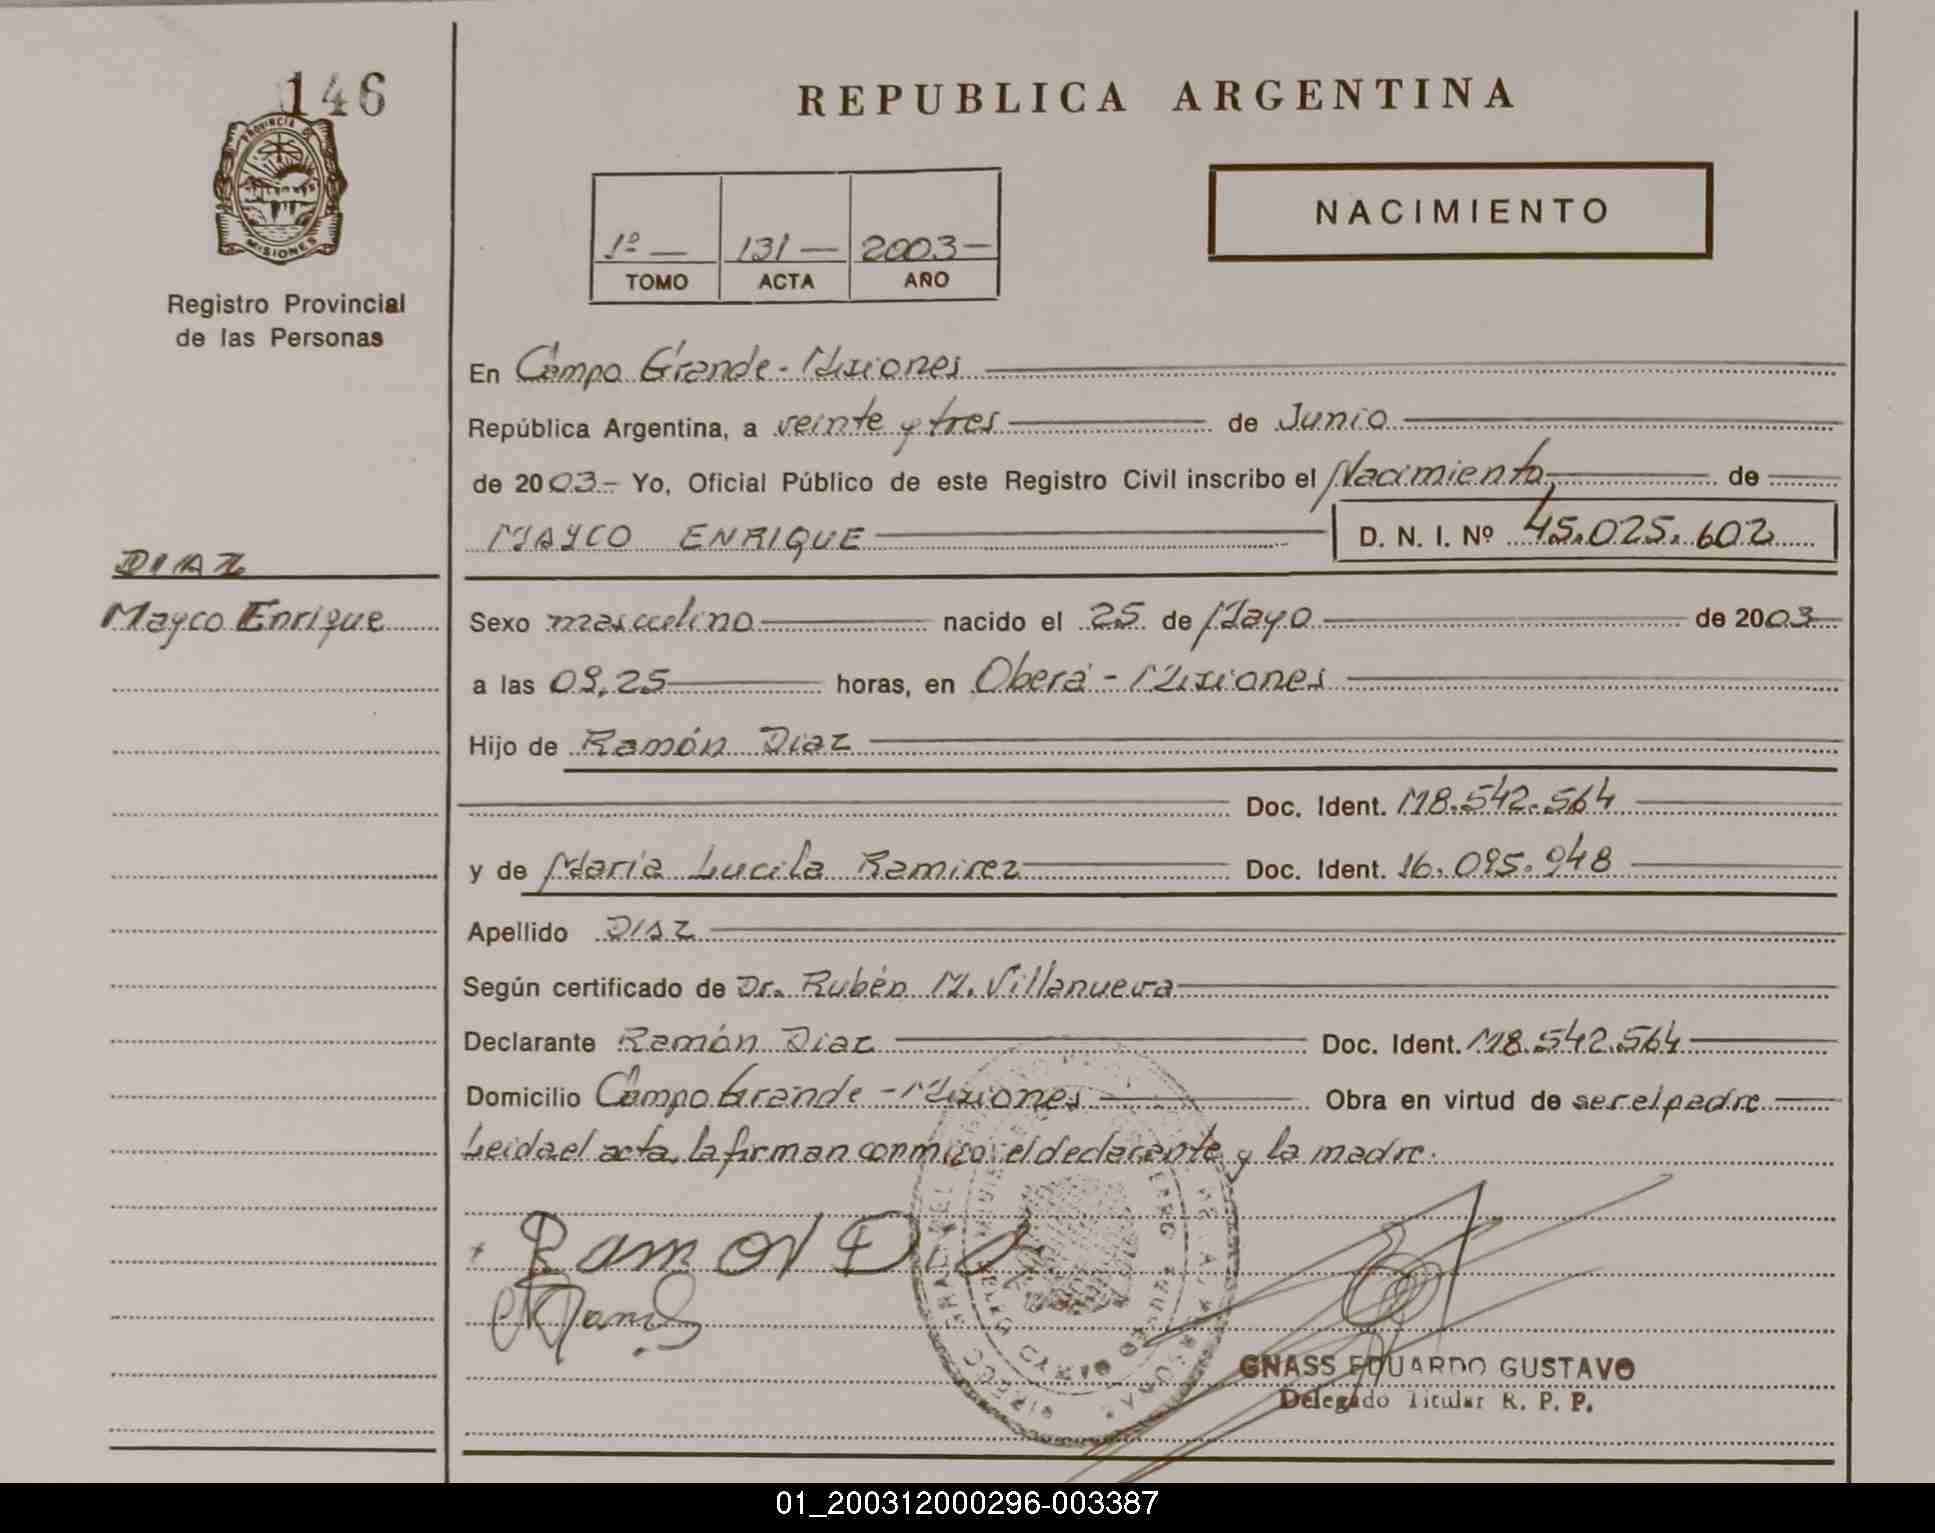 146
PROVINCIA DE
MISIONES
Registro Provincial
de las Personas
DIAZ
Mayco Enrique
REPUBLICA ARGENTINA
NACIMIENTO
1º — 131 — 2003 —
TOMO ACTA AÑO
En Campo Grande - Misiones
República Argentina, a veinte y tres de Junio
de 2003 - Yo, Oficial Público de este Registro Civil inscribo el Nacimiento de
MAYCO ENRIQUE D. N. I. Nº 45.025.602
Sexo masculino nacido el 25 de Mayo de 2003
a las 09,25 horas, en Oberá - Misiones
Hijo de Ramón Diaz
Doc. Ident. M8.542.564
y de María Lucila Ramirez Doc. Ident. 16.095.948
Apellido DIAZ
Según certificado de Dr. Rubén M. Villanueva
Declarante Ramón Diaz Doc. Ident. M8.542.564
Domicilio Campo Grande - Misiones Obra en virtud de ser el padre
Leida el acta, la firman conmigo: el declarante y la madre.
Ramon Dia
GNASS EDUARDO GUSTAVO
Delegado Titular R. P. P.
01_200312000296-003387